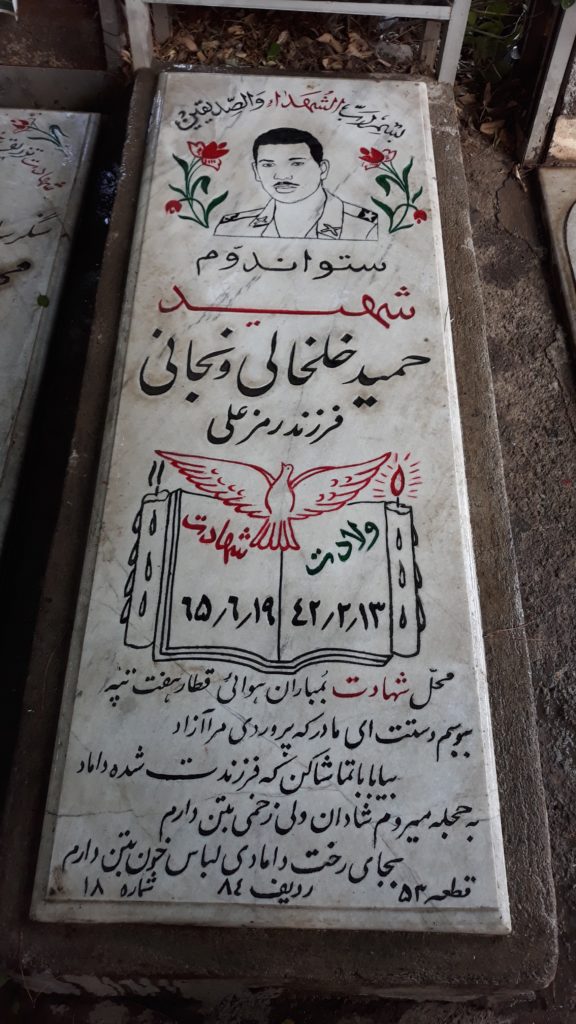 بسم رب الشهداء والصدیقین
ستواندوم
شهید
حمید خلخالی ونجانی
فرزند رمزعلی
ولادت شهادت
۴۲٫۲٫۱۳ ۶۵٫۶٫۱۹
محل شهادت بمباران هوائی قطار هفت تپه
ببوسم دستت ای مادر که پروردی مرا آزاد
بیا بابا تماشا کن که فرزندت شده داماد
به حجله میروم شادان ولی زخمی بتن دارم
بجای رخت دامادی لباس خون بتن دارم
قطعه ۵۳ ردیف ۸۴ شماره ۱۸
شهادت